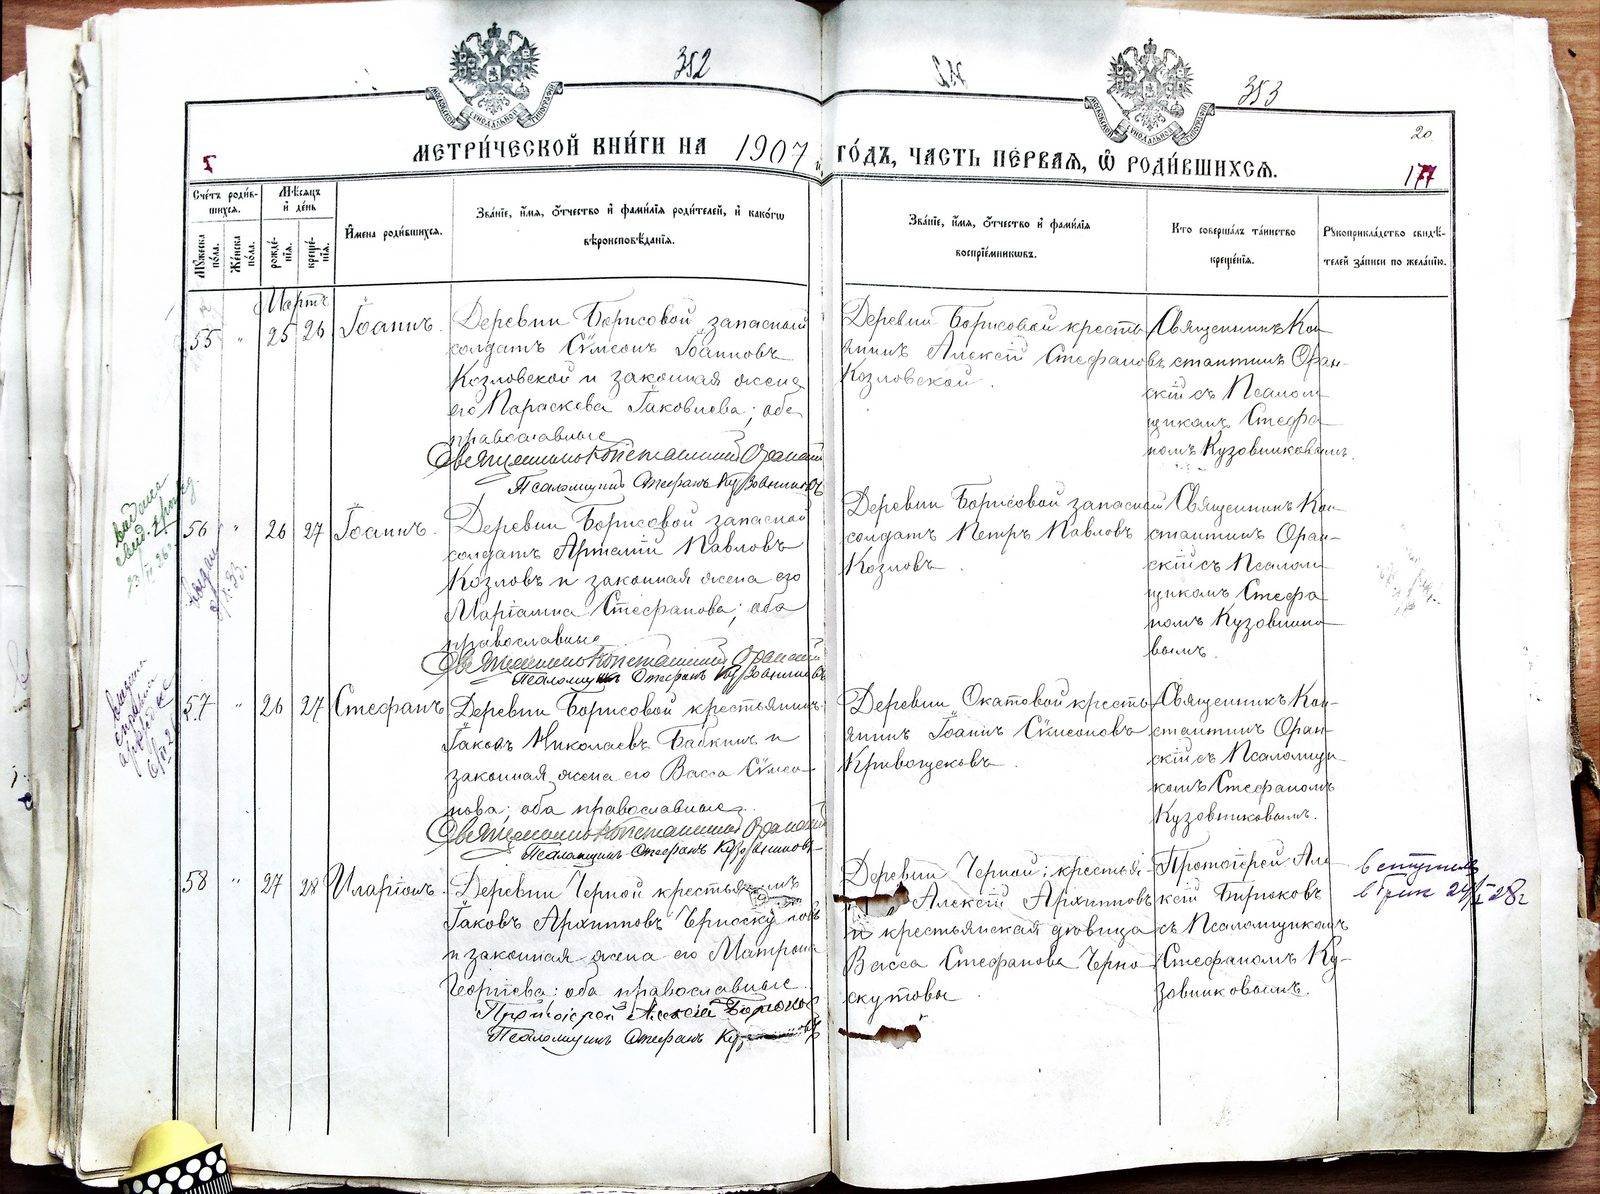 352
353
20
МОСКОВСКОЙ СѴНОДАЛЬНОЙ ТИПОГРАФІИ
МЕТРИ́ЧЕСКОЙ КНИ́ГИ НА 1907
ГО́ДЪ, ЧАСТЬ ПЕ́РВАЯ, Ѽ РОДИ́ВШИХСЯ.
177
Сче́тъ роди́в-
шихся.
Мѣ́сяцъ
и҆ де́нь
Мꙋ́жеска по́ла.
Же́нска по́ла.
рожде́-
нїя.
креще́-
нїя.
И҆мена роди́вшихся.
Зва́нїе, и҆́мя, ѻ҆́тчество и҆ фами́лїя роди́телей, и҆ како́гѡ
вѣроисповѣ́данїя.
Зва́нїе, и҆́мя, ѻ҆́тчество и҆ фами́лїя
воспрїе́мникѡвъ.
Кто соверша́лъ та́инство
креще́нїя.
Рꙋкоприкла́дство свидѣ́-
телей за́писи по жела́нїю.
Мартъ
55 " 25 26 Іоаннъ.
Деревни Борисовой запасный
солдатъ Сѵмеонъ Іоанновъ
Козловской и законная жена
его Параскева Іаковлева; оба
православные
Священникъ Константинъ Оранскій
Псаломщикъ Стефанъ Кузовниковъ
Деревни Борисовой кресть
янинъ Алексій Стефановъ
Козловской.
Священникъ Кон-
стантинъ Оран-
скій съ Псалом
щикомъ Стефа
номъ Кузовниковымъ.
56 " 26 27 Іоаннъ.
Деревни Борисовой запасной
солдатъ Артемій Павловъ
Козловъ и законная жена его
Маріамна Стефанова; оба
православные
Священникъ Константинъ Оранскій
Псаломщикъ Стефанъ Кузовниковъ
Деревни Борисовой запасной
солдатъ Петръ Павловъ
Козловъ.
Священникъ Кон-
стантинъ Оран-
скій съ Псалом
щикомъ Стефа
номъ Кузовнико
вымъ.
57 " 26 27 Стефанъ
Деревни Борисовой крестьянинъ
Іаковъ Николаевъ Бабкинъ и
законная жена его Васса Сѵмео
нова; оба православные.
Священникъ Константинъ Оранскій
Псаломщикъ Стефанъ Кузовниковъ
Деревни Окатовой кресть
янинъ Іоаннъ Сѵмеоновъ
Кривощековъ.
Священникъ Кон-
стантинъ Оран-
скій съ Псаломщи
комъ Стефаномъ
Кузовниковымъ.
58 " 27 28 Иларіонъ.
Деревни Черной крестьянинъ
Іаковъ Архипповъ Черноскутовъ
и законная жена его Матрона
Георгіева: оба православные.
Протоіерей Алексій Бирюковъ
Псаломщикъ Стефанъ
Деревни Черной: крестья
Алексій Архипповъ
и крестьянская дѣвица
Васса Стефанова Черно
скутовы
Протоіерей Але
ксій Бирюковъ
съ Псаломщикомъ
Стефаномъ Ку-
зовниковымъ.
вступил
в брак 24/I 28 г